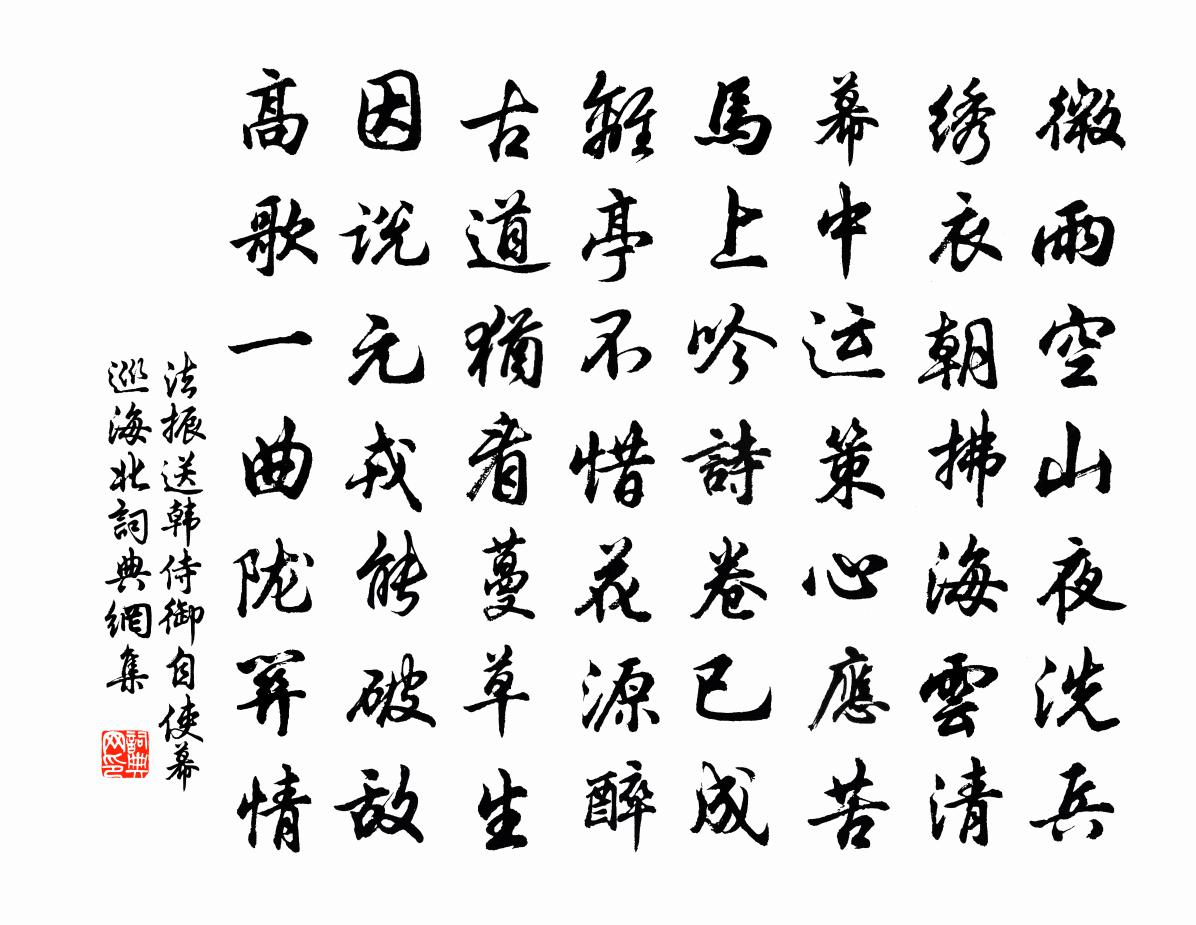 微雨空山夜洗兵
绣衣朝拂海雲清
幕中运策心應苦
馬上吟詩卷已成
離亭不惜花源醉
古道犹看蔓草生
因说元戎能破敌
高歌一曲陇関情
法振送韩侍御自使幕
巡海北詞典網集
詞典
网印